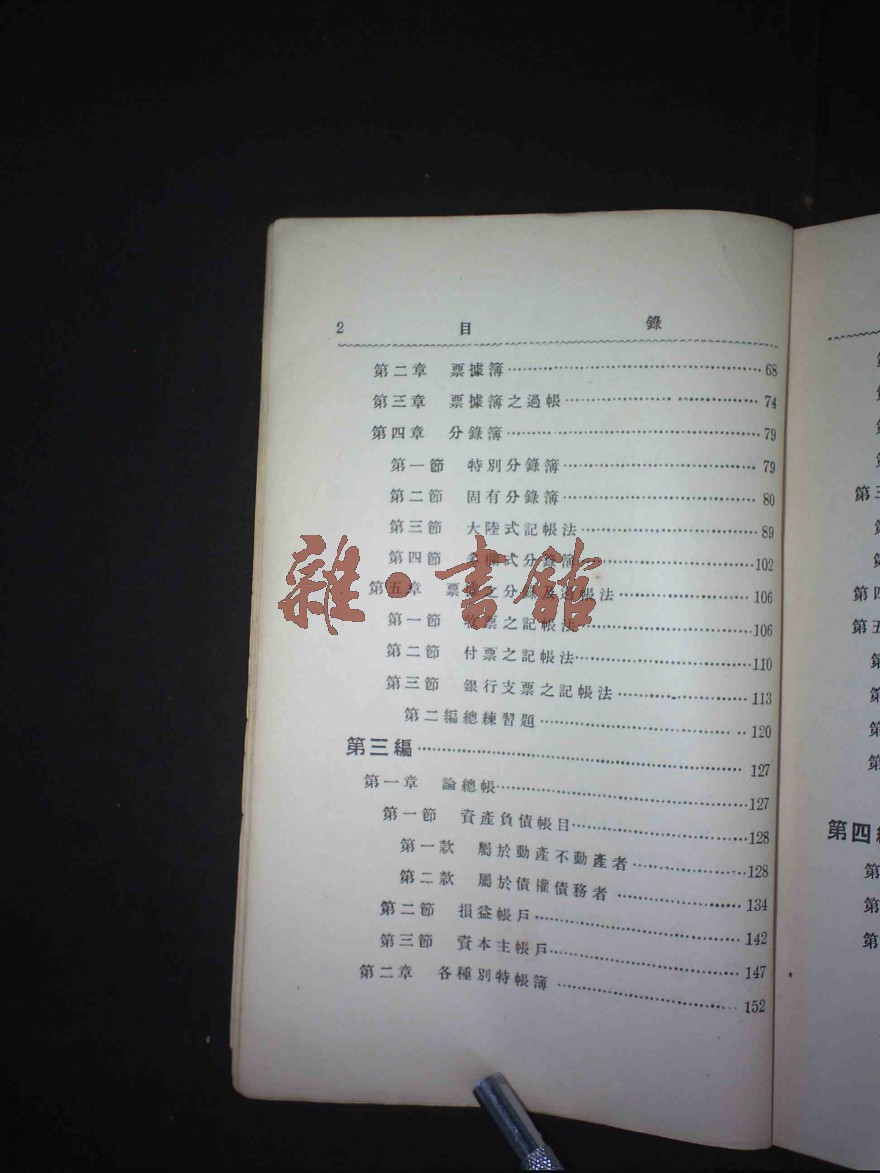 2 目 錄
第二章 票據簿 68
第三章 票據簿之過帳 74
第四章 分錄簿 79
第一節 特別分錄簿 79
第二節 固有分錄簿 80
第三節 大陸式記帳法 89
第四節 多欄式分錄簿 102
第五章 票據之分錄及過帳法 106
第一節 收票之記帳法 106
第二節 付票之記帳法 110
第三節 銀行支票之記帳法 113
第二編總練習題 120
第三編 127
第一章 論總帳 127
第一節 資產負債帳目 128
第一款 屬於動產不動產者 128
第二款 屬於債權債務者 134
第二節 損益帳戶 142
第三節 資本主帳戶 147
第二章 各種別特帳簿 152
雜·書館
第三
第四
第五
第四編